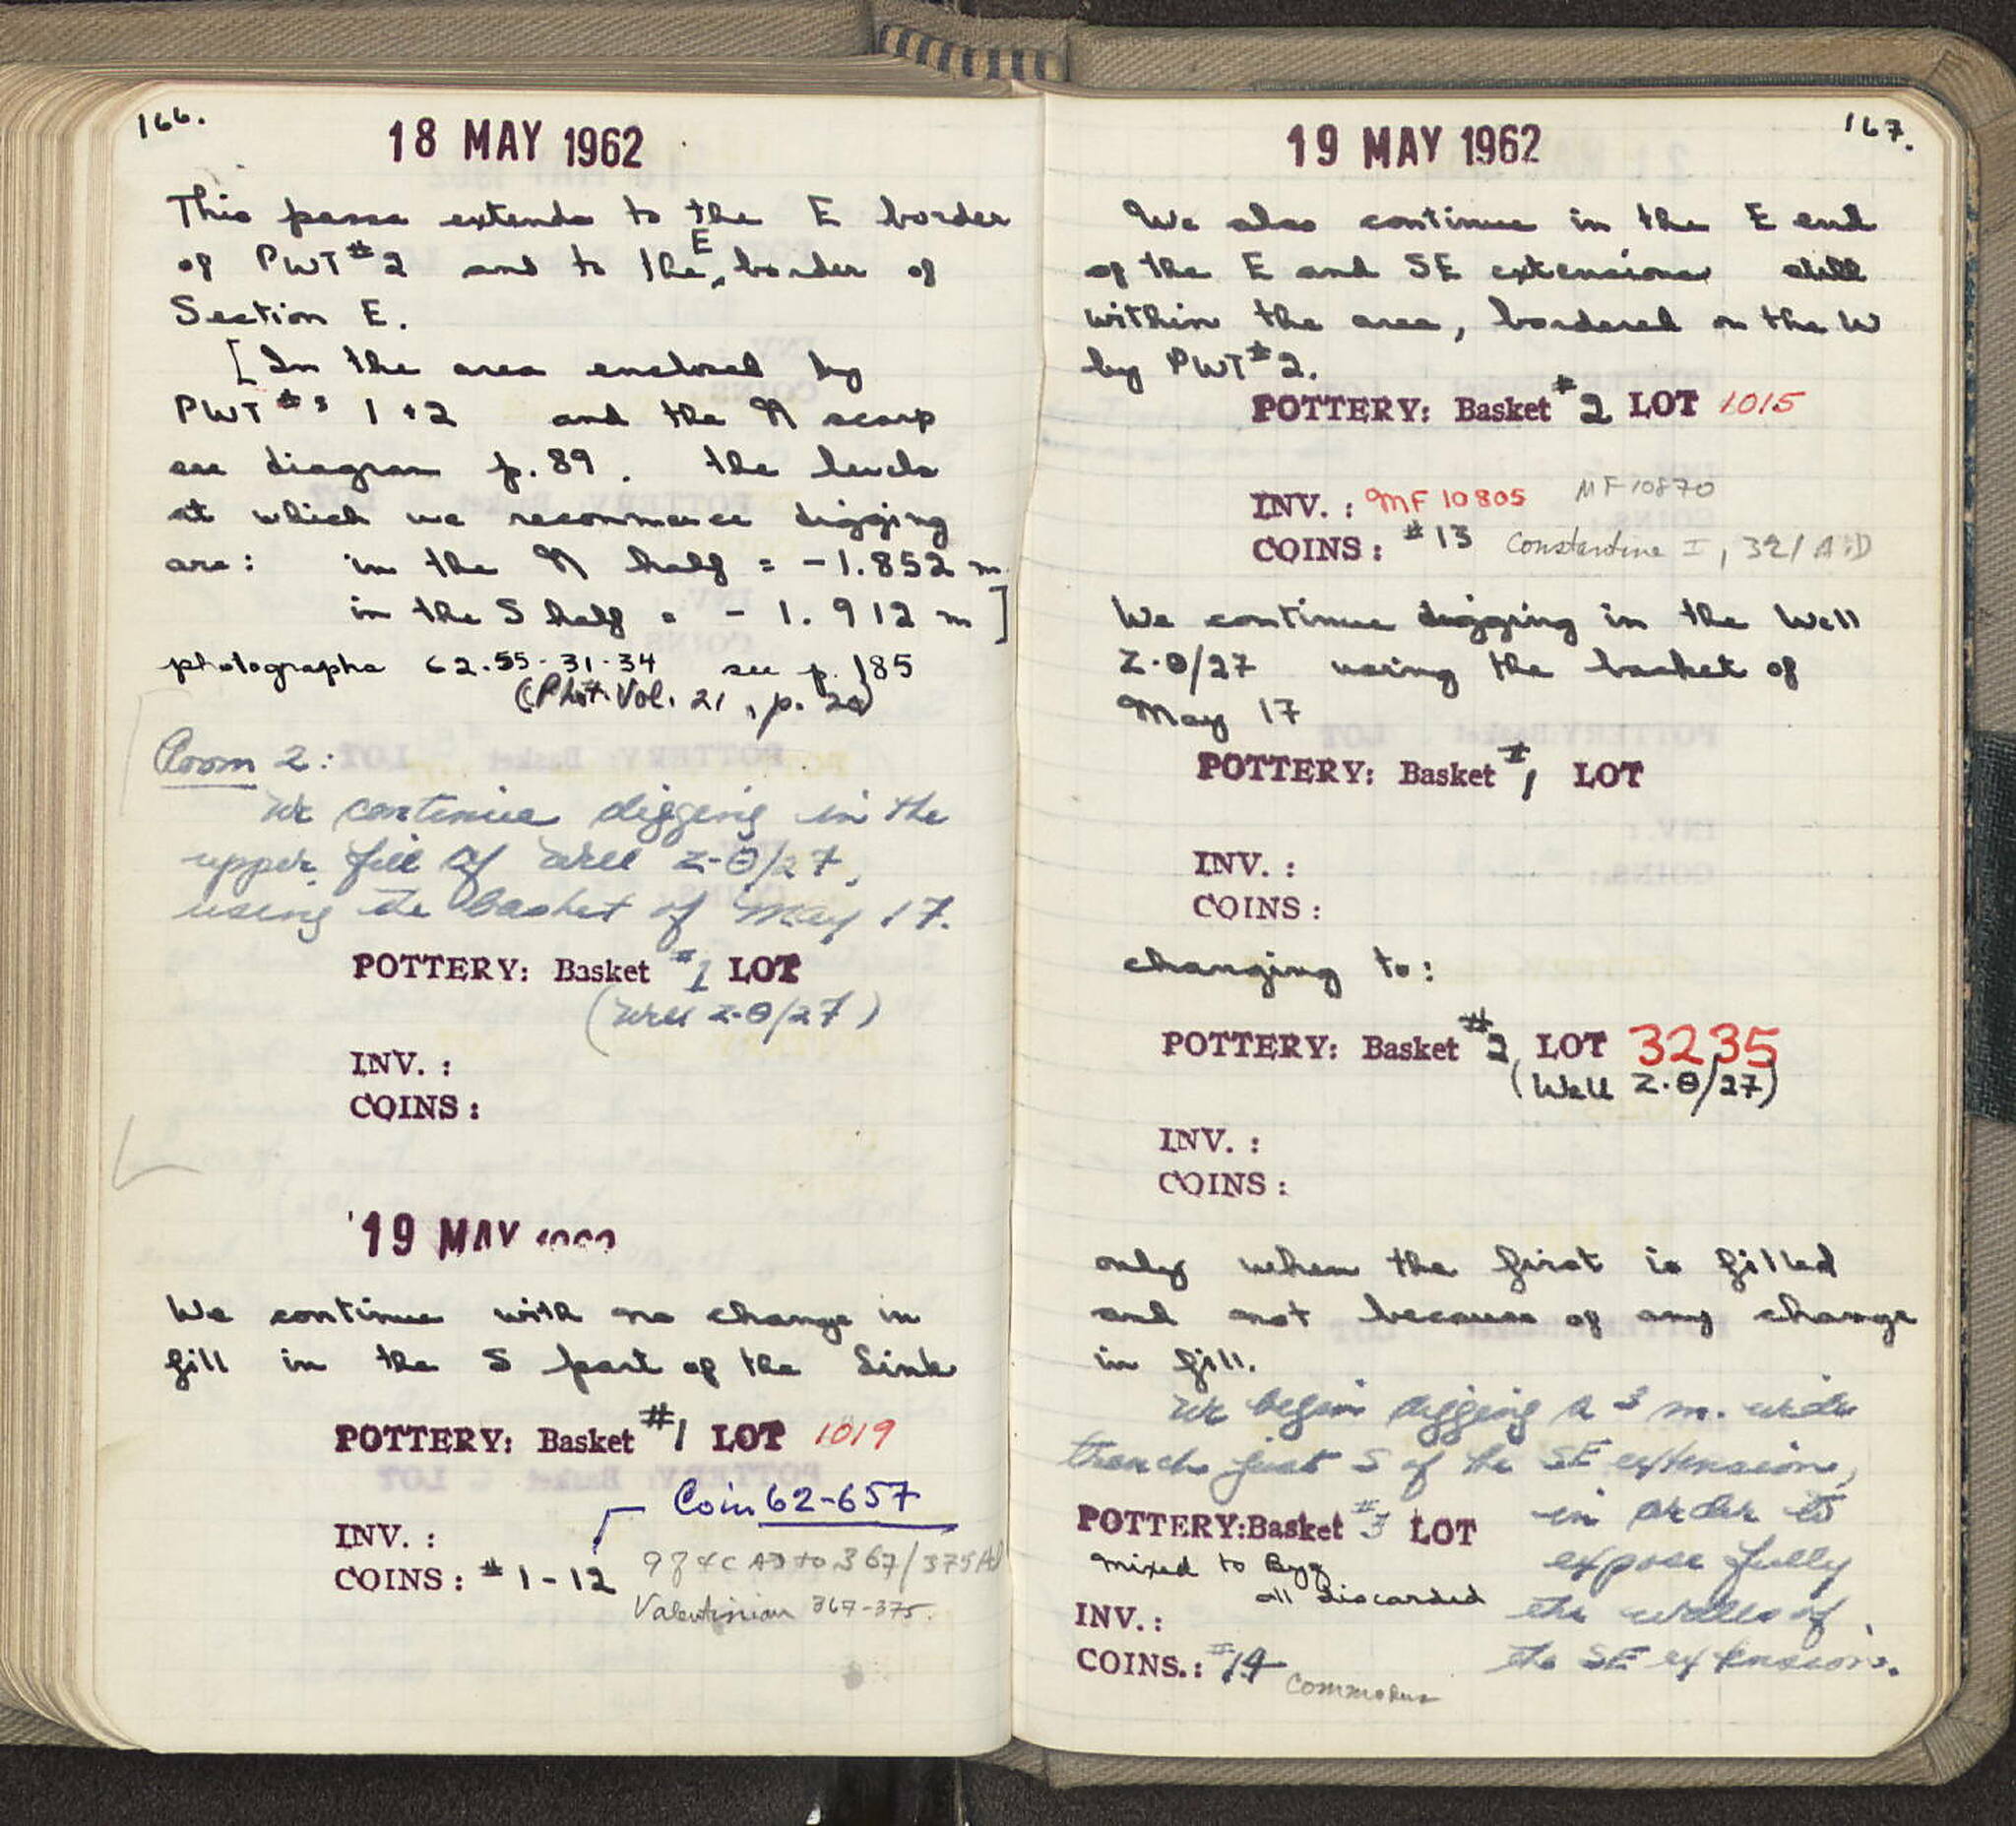 166.
18 MAY 1962
This passa extends to the E border
of PWT #2 and to the E border of
Section E.
[In the area enclosed by
PWT #s 1 + 2 and the N scarp
see diagram p. 89. the levels
at which we recommence digging
are: in the N half = -1.852 m
in the S half = -1.912 m]
photographs 62.55-31-34 see p. 185
(Phot. Vol. 21, p. 20)
Room 2:
We continue digging in the
upper fill of Well Z-Θ/27,
using the basket of May 17.
POTTERY: Basket #1 LOT
(Well Z-Θ/27)
INV. :
COINS :
19 MAY 1962
We continue with no change in
fill in the S part of the Sink
POTTERY: Basket #1 LOT 1019
Coin 62-657
INV. :
COINS : #1-12 98 4C AD to 367/375 AD
Valentinian 367-375.
167.
19 MAY 1962
We also continue in the E end
of the E and SE extensions still
within the area, bordered on the W
by PWT #2.
POTTERY: Basket #2 LOT 1015
INV. : MF 10805 MF 10870
COINS : #13 Constantine I, 321 A.D
We continue digging in the Well
Z-Θ/27 using the basket of
May 17
POTTERY: Basket #1 LOT
INV. :
COINS :
changing to:
POTTERY: Basket #2 LOT 3235
(Well Z-Θ/27)
INV. :
COINS :
only when the first is filled
and not because of any change
in fill.
We begin digging a 3 m. wide
trench just S of the SE extension,
in order to
expose fully
the walls of
the SE extension.
POTTERY: Basket #3 LOT
Mixed to Byz
all discarded
INV. :
COINS. : #14 Commodus